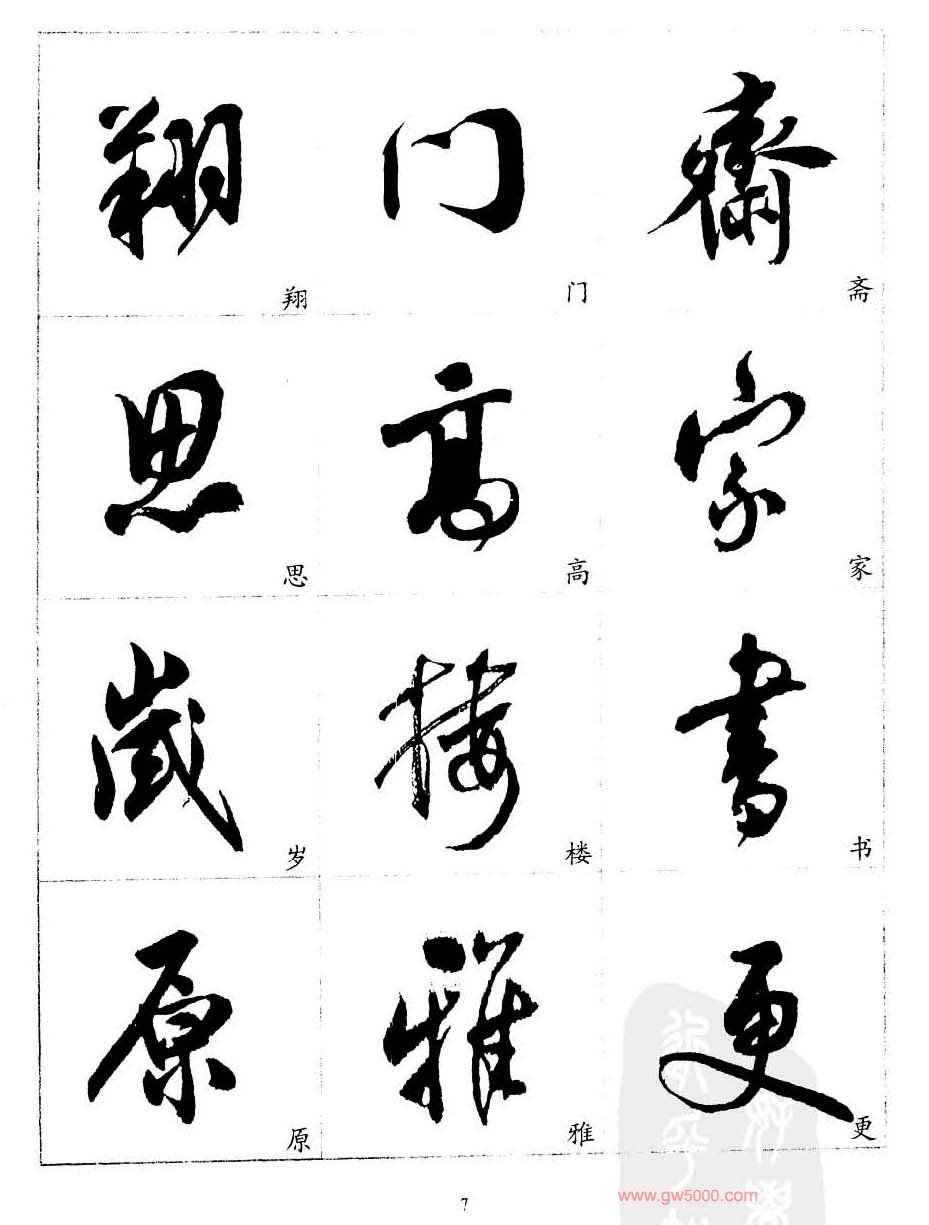 翔 门 齋
翔 门 斋
思 高 家
思 高 家
歲 楼 書
岁 楼 书
原 雅 更
原 雅 更
www.gw5000.com
7